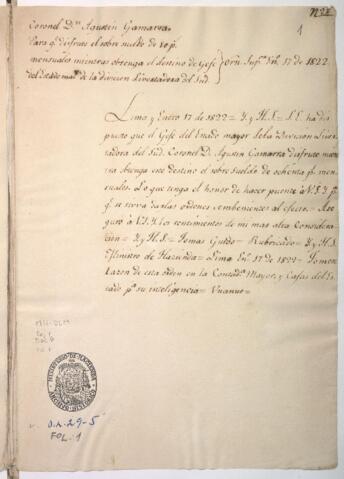 Nº 25
1
Coronel Dn. Agustin Gamarra.
Para q. disfrute el sobre sueldo de 80 p.
mensuales mientras obtenga el destino de Gefe
del Estado mayr. de la Divicion Livertadora del Sud.
Orn. Supr. En. 17 de 1822.
Lima y Enero 17 de 1822 = Y. y H. S. = S. E. ha dis
puesto que el Gefe del Estado mayor de la Divicion Liver
tadora del Sud. Coronel D. Agustin Gamarra disfrute mien
tras obtenga este destino el sobre sueldo de ochenta p. men
suales. Lo que tengo el honor de hacer presente à V. S. Y. p.
q. se sirva dar las ordenes combenientes al efecto = Ase
guro à V. S. Y. los sentimientos de mi mas alta Considera
cion = Y. y H. S. = Tomas Guido = Rubricado = Y. y H. S.
Ministro de Hacienda = Lima En. 17 de 1822 = Tomese
Razon de esta orden en la Contadª. Mayor, y Cajas del Es
tado pª. su inteligencia = Unanue =
MINISTERIO DE HACIENDA
ARCHIVO HISTORICO
O.L. 29-5
FOL. 1